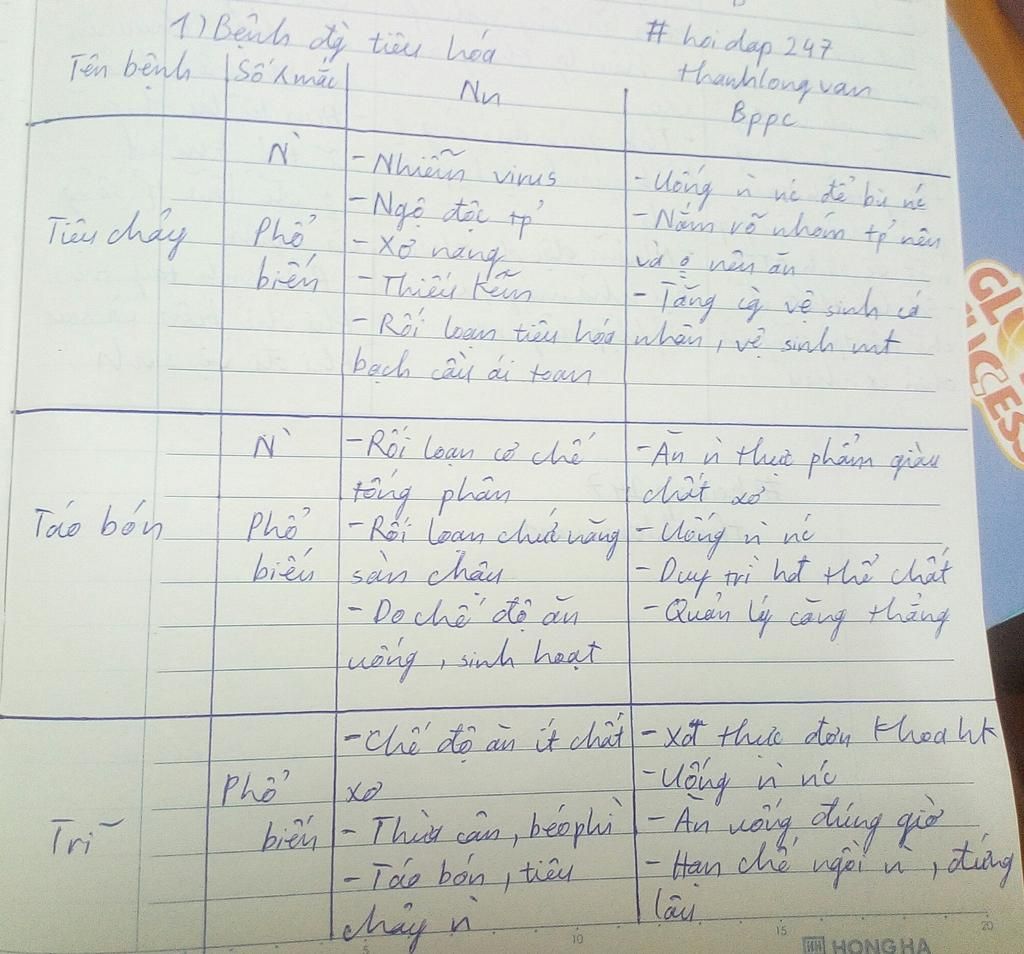 1) Bệnh đg tiêu hóa
# hoidap 247
thanhlongvan
Tên bệnh
Số λ mắc
Nn
Bppc
Tiêu chảy
Ǹ
Phổ
biến
- Nhiễm virus
- Ngộ độc tp'
- Xơ nang
- Thiếu kẽm
- Rối loạn tiêu hóa
bạch cầu ái toan
- Uống ǹ nc để bù nc
- Nắm rõ nhóm tp' nên
và o nên ăn
- Tăng cg vệ sinh cá
nhân, vệ sinh mt
Táo bón
Ǹ
Phổ
biến
- Rối loạn cơ chế
tống phân
- Rối loạn chức năng
sàn chậu
- Do chế độ ăn
uống, sinh hoạt
- Ăn ǹ thực phẩm giàu
chất xơ
- Uống ǹ nc
- Duy trì hđ thể chất
- Quản lý căng thẳng
Trĩ
Phổ
biến
- Chế độ ăn ít chất
xơ
- Thừa cân, béo phì
- Táo bón, tiêu
chảy ǹ
- Xd thực đơn khoa hk
- Uống ǹ nc
- Ăn uống đúng giờ
- Hạn chế ngồi ǹ, đứng
lâu
5 10 15 20
HONG HA